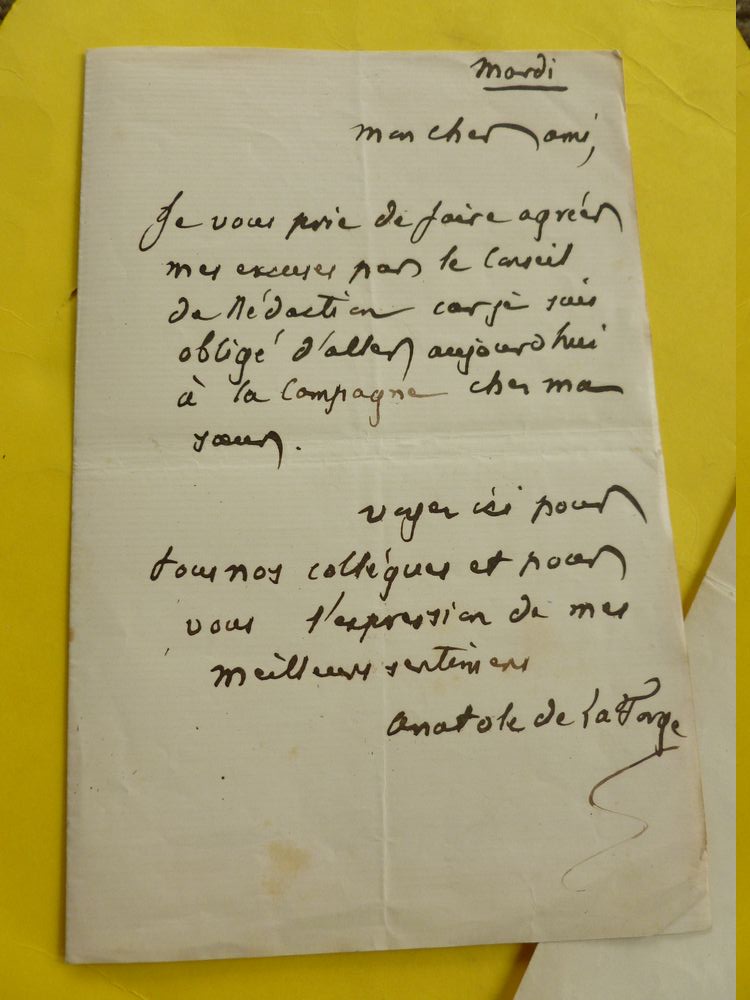 Mardi
Mon cher ami,
Je vous prie de faire agréer
mes excuses par le Conseil
de Rédaction car je suis
obligé d'aller aujourd'hui
à la Campagne chez ma
sœur.
voyez ici pour
tous nos collègues et pour
vous l'expression de mes
meilleurs sentimens
Anatole de La Forge